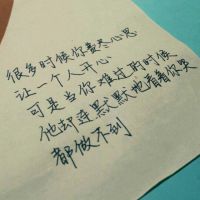 很多时候你费尽心思
让一个人开心
可是当你难过的时候
他却连默默地看着你哭
都做不到